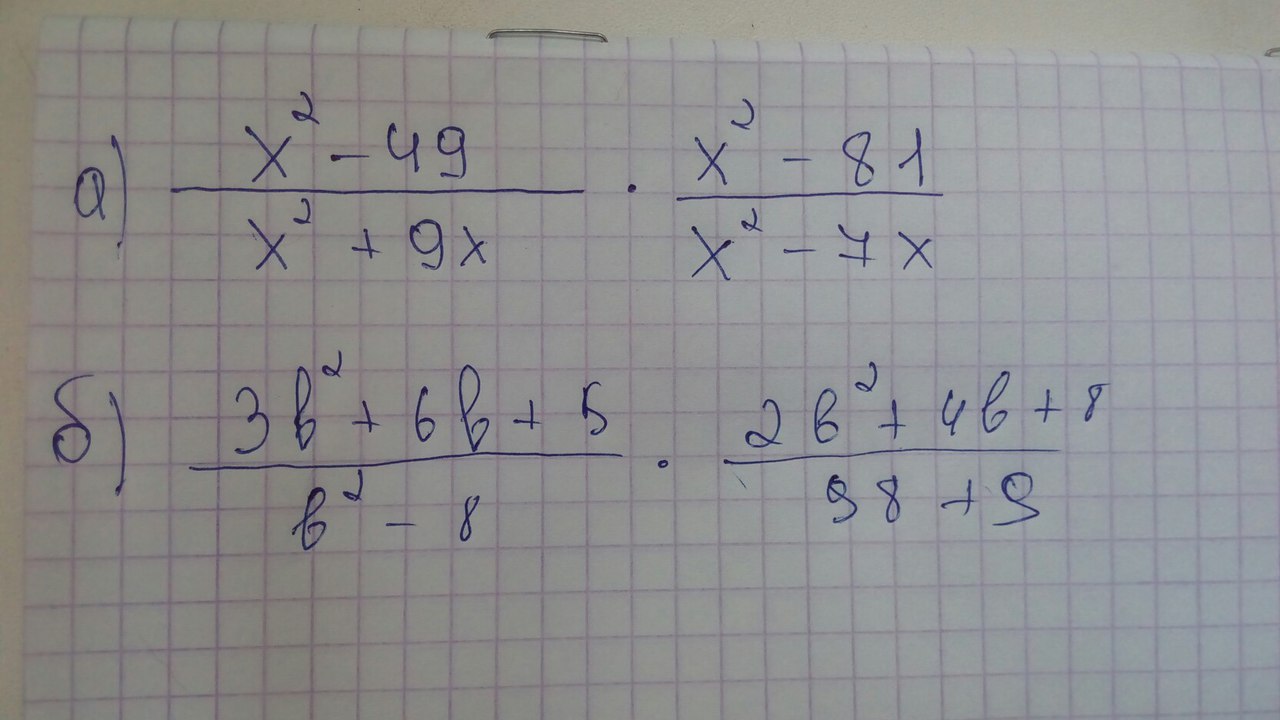 а) (x² - 49)/(x² + 9x) · (x² - 81)/(x² - 7x)
б) (3в² + 6в + 5)/(в² - 8) · (2в² + 4в + 8)/(98 + 9)